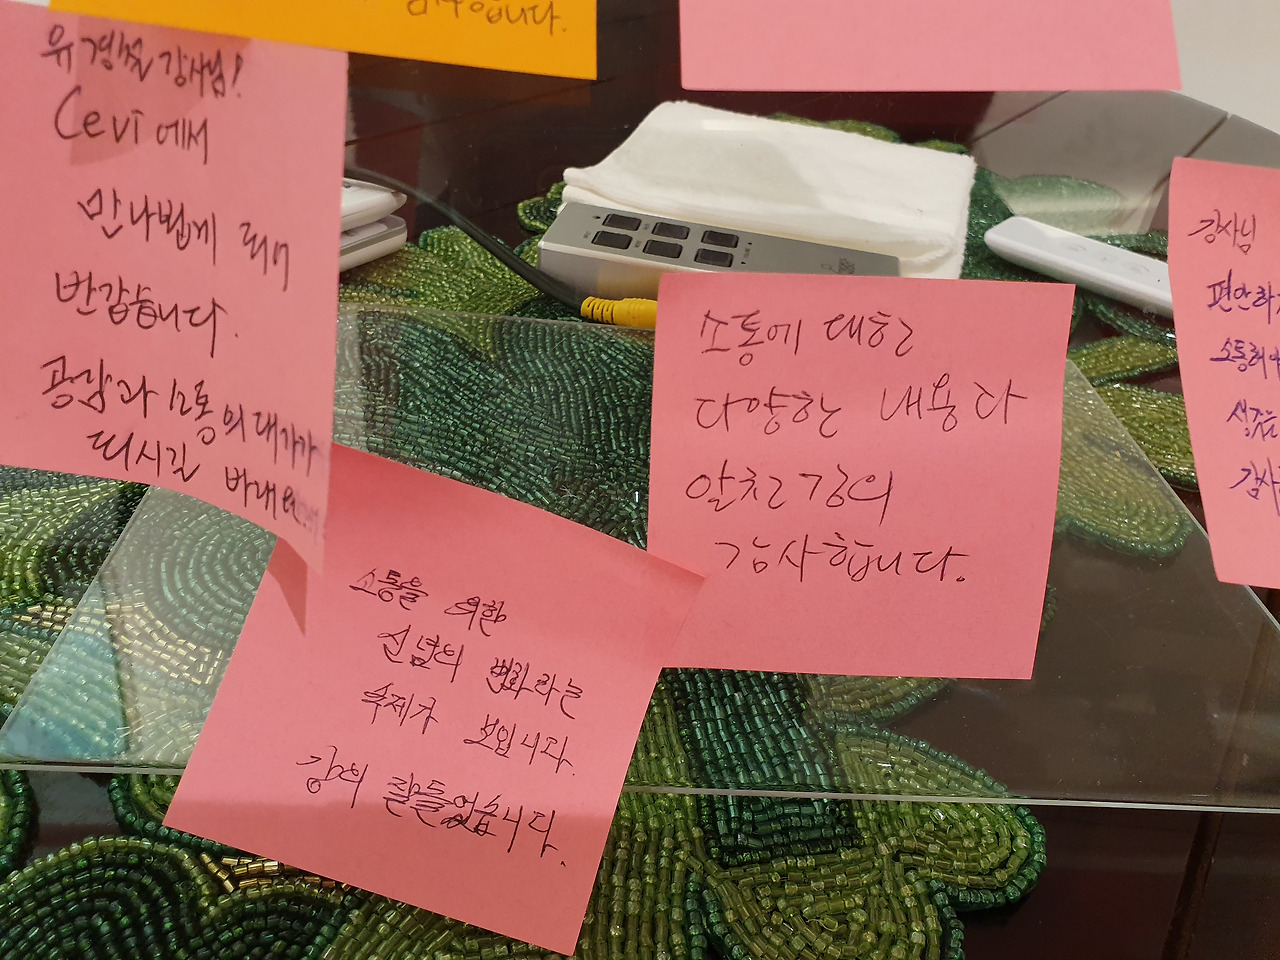 유경철 강사님!
Cevi에서
만나뵙게 되어
반갑습니다.
공감과 소통의 대가가
되시길 바래요
소통에 대한
다양한 내용과
알찬 강의
감사합니다.
소통을 위한
신념의 변화라는
숙제가 보입니다.
강의 잘들었습니다.
강사님
편안하
감사